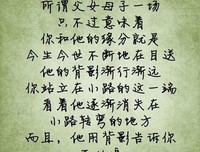 所谓父女母子一场
只不过意味着
你和他的缘分就是
今生今世不断地在目送
他的背影渐行渐远
你站立在小路的这一端
看着他逐渐消失在
小路转弯的地方
而且，他用背影告诉你